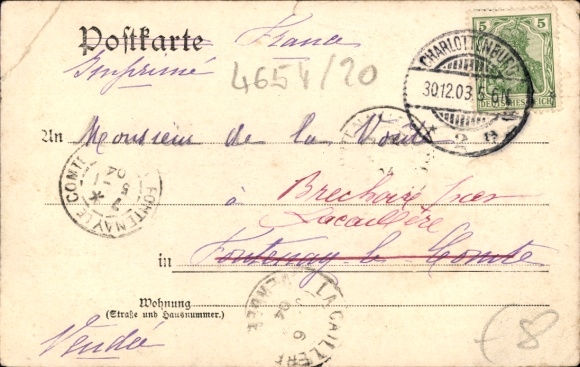 Postkarte France
Imprimé
4654/20
5
DEUTSCHES REICH
CHARLOTTENBURG
30.12.03. 5-6N.
* 2 e
An Monsieur de la
FONTENAY-LE-COMTE
à par
Lacaillère
in Fontenay le Comte
LA CAILLERE
6
04
Wohnung
(Straße und Hausnummer.)
Vendée
8